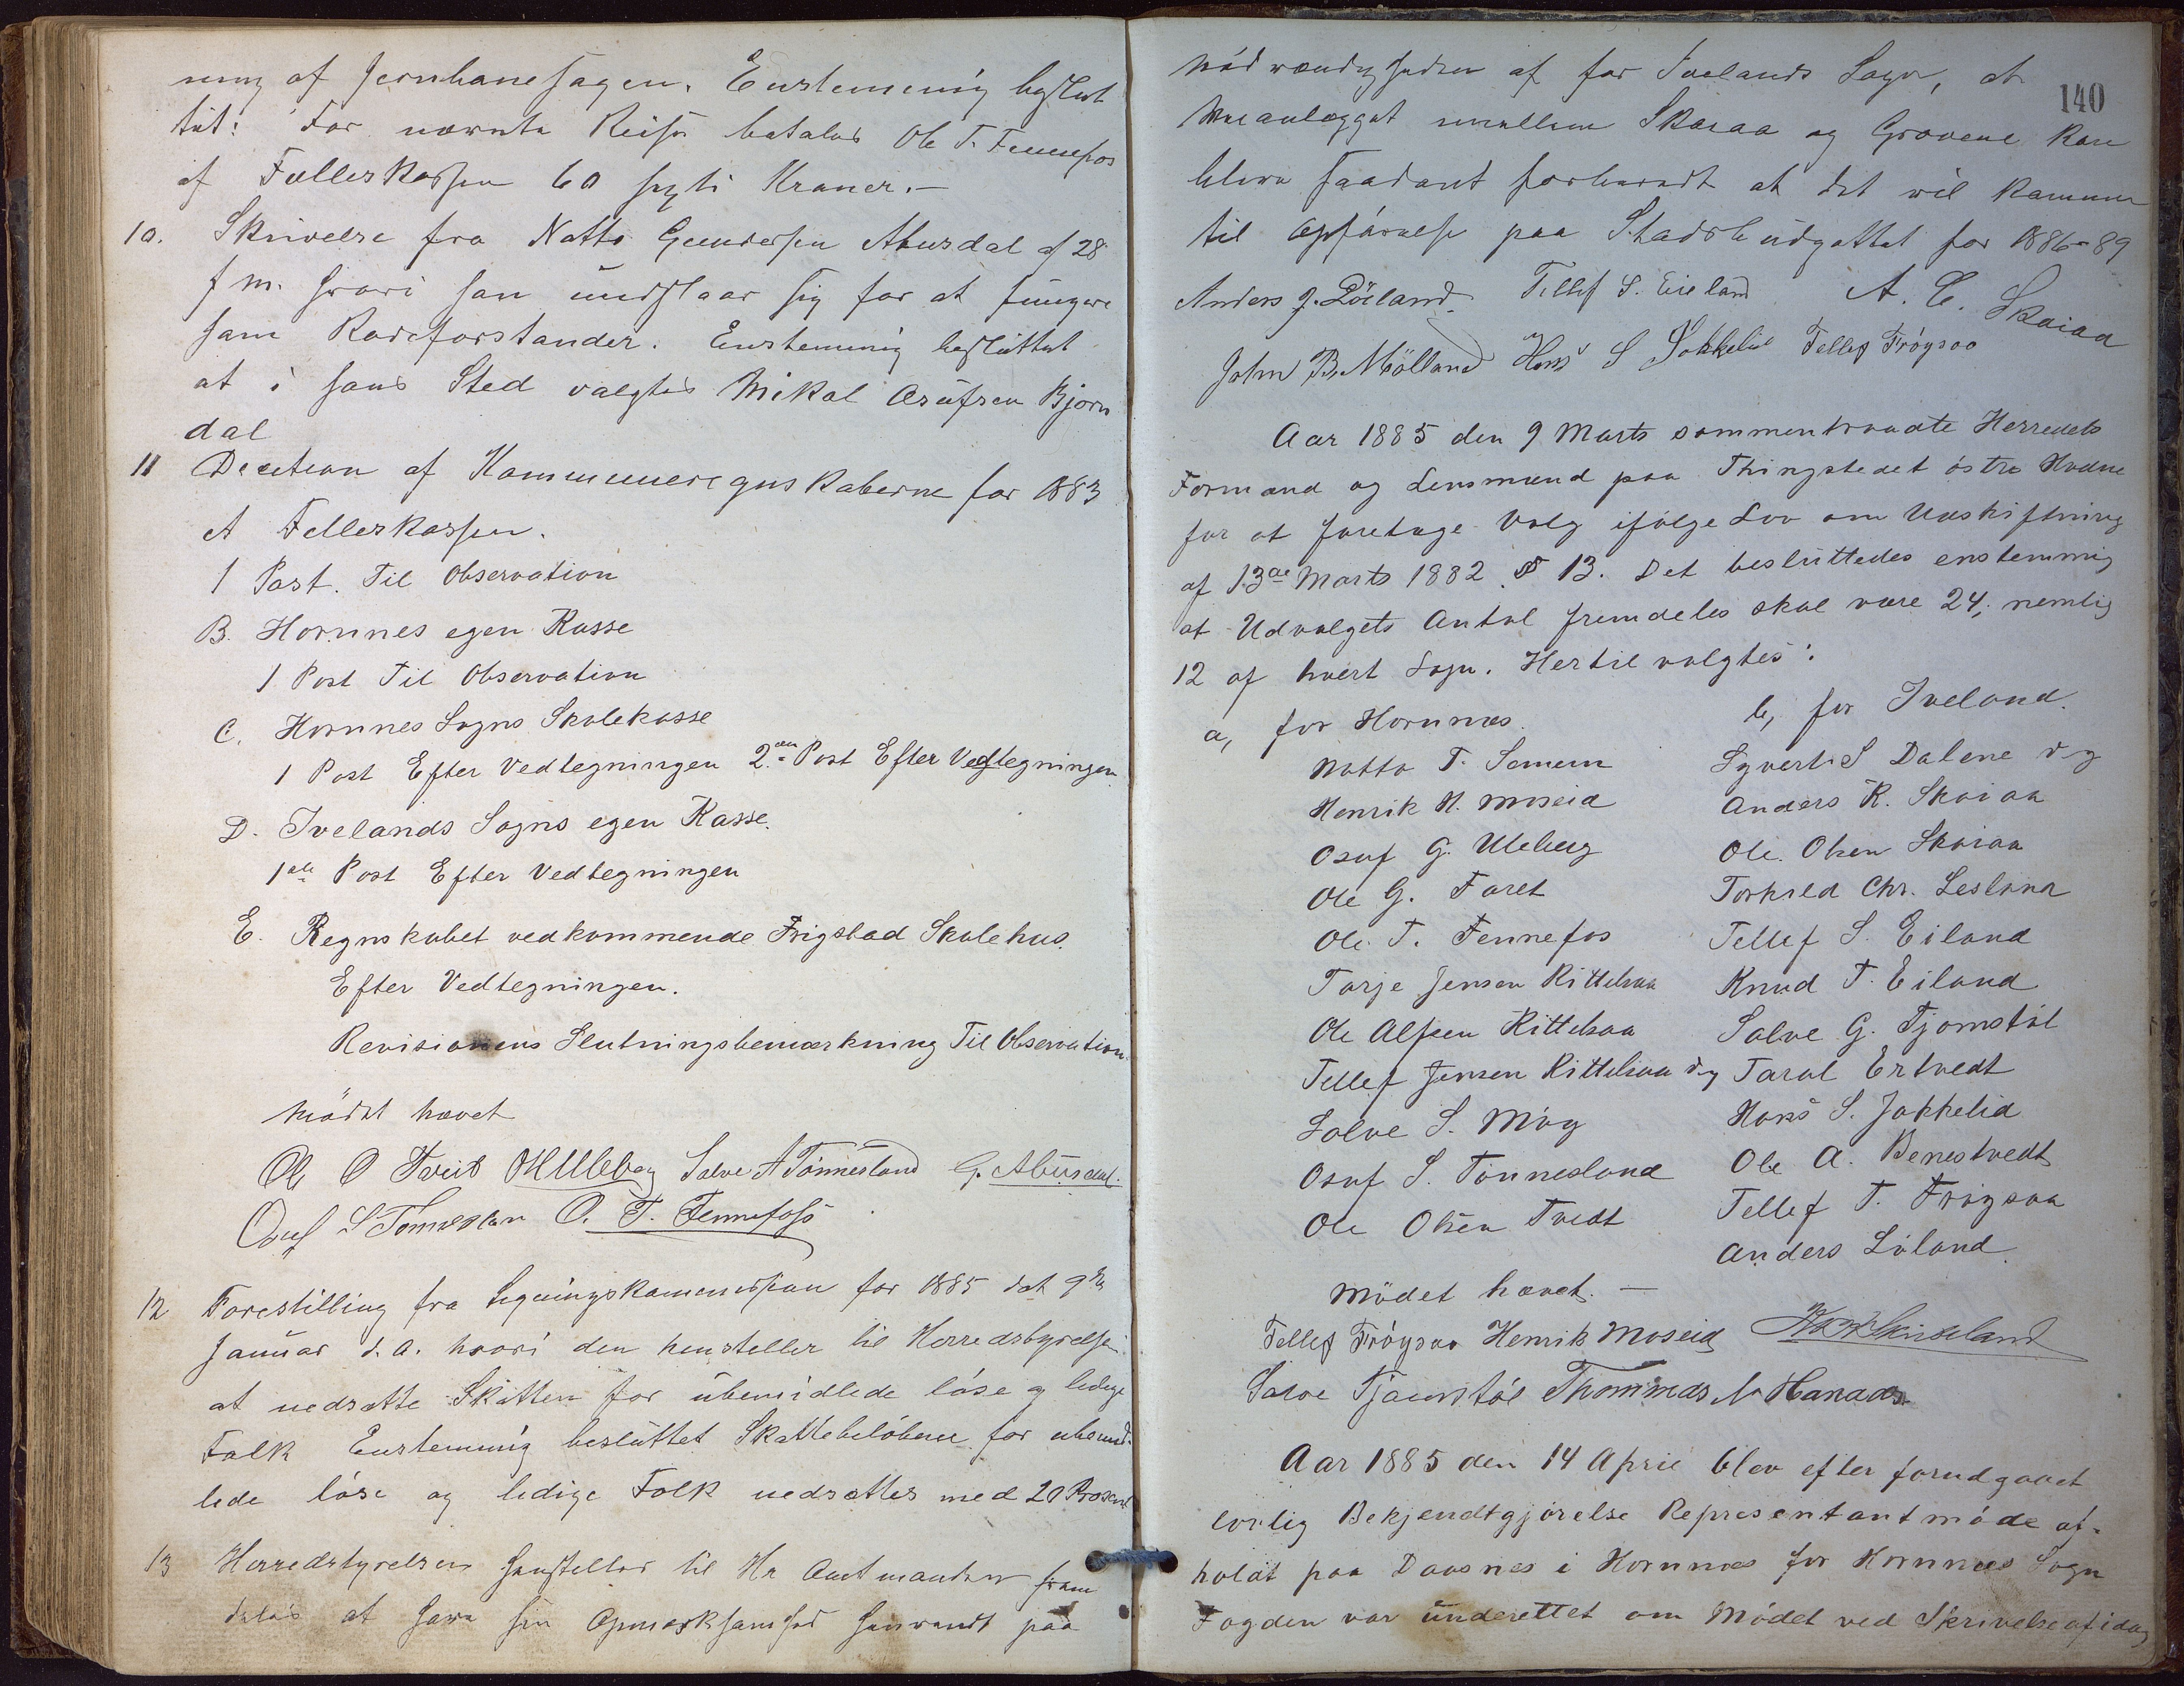 ning af Jernbanesagen. Enstemmig beslut
tet: For nævnte Reise betales Ole T. Fennefos
af Fælleskassen 60 sexti Kroner.—
10. Skrivelse fra Natto Gundersen Abusdal af 28
f m. hvori han undslaar sig for at fungere
som Rodeforstander. Enstemmig besluttet
at i hans Sted valgtes Mikal Osufsen Bjørn
dal
11 Decition af Kommuneregnskaberne for 1883
A Felleskassen.
1 Post. Til Observation
B. Hornnes egen Kasse
1 Post Til Observation
C. Hornnes Sogns Skolekasse
1 Post Efter Vedtegningen 2den Post Efter Vedtegningen
D. Ivelands Sogns egen Kasse.
1ste Post Efter Vedtegningen
E. Regnskabet vedkommende Frigstad Skolehus.
Efter Vedtegningen.
Revisionens Slutningsbemærkning Til Observation.
Mödet hævet
Ole O Tveit OHUleberg Salve A Tönnesland G. Abusdal.
Osuf S Tönneslan O. T. Fennefoss
12 Forestilling fra Ligningskommissjonen for 1885 dat 9de
Januar d. A. hvori den henstiller til Herredstyrelsen
at nedsætte Skatten for ubemidlede löse og ledige
Folk Enstemmig besluttet Skattebelöbene for ubemid-
lede löse og ledige Folk nedsættes med 20 Prosent
13 Herredstyrelsen henstiller til Hr Amtmanden frem
deles at have sin Opmærksomhed henvendt paa
140
nödvændigheden af for Ivelands Sogn, at
Veianlægget mellem Skaiaa og Grovene kan
blive saadant forberedt at det vil komme
til Opförelse paa Stadsbudgettet for 1886-89
Anders J. Löiland. Tellef S. Eieland A. C. Skaiaa
John B. Mölland Hans S Jokkelid Tellef Fröysaa
Aar 1885 den 9 Marts sammentraadte Herredets
Formænd og Lensmænd paa Thingstedet östre Hodne
for at foretage Valg ifölge Lov om Udskiftning
af 13de Marts 1882 § 13. Det besluttedes enstemmig
at Udvalgets Antal fremdeles skal være 24, nemlig
12 af hvert Sogn. Hertil valgtes:
a, for Hornnæs. b, for Iveland.
Natto T. Semum Syvert S Dalene v g
Henrik H. Moseid Anders K. Skaiaa
Osuf G. Uleberg Ole Olsen Skaiaa
Ole G. Faret Torkild Chr. Lesland
Ole T. Fennefos Tellef S. Eiland
Tarje Jensen Kittelsaa Knud T. Eiland
Ole Alfsen Kittelsaa Salve G. Tjomstöl
Tellef Jensen Kittelsaa v g Taral Ertvedt
Salve S. Müg Hans S. Jokkelid
Osuf S. Tönnesland Ole A. Benestvedt
Ole Olsen Tvedt Tellef T. Fröysaa
Anders Löland
Mödet hævet. —
Tellef Fröysaa Henrik Moseid
Salve Tjamstöl Thommas N Hanaas
Aar 1885 den 14 April blev efter forudgaaet
lovlig Bekjendtgjörelse Representantmöde af-
holdt paa Daasnes i Hornnæs for Hornnæs Sogn
Fogden var underettet om Mödet ved Skrivelse af idag